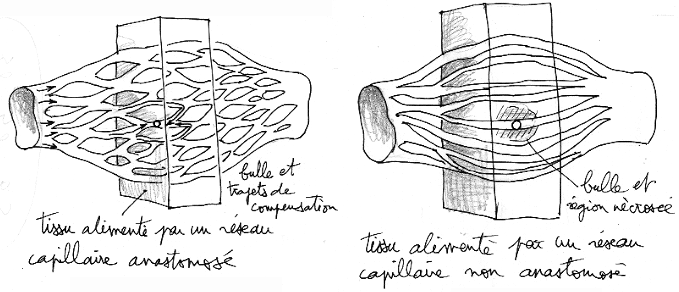 bulle et
trajets de
compensation
tissu alimenté par un réseau
capillaire anastomosé
bulle et
région nécrosée
tissu alimenté par un réseau
capillaire non anastomosé